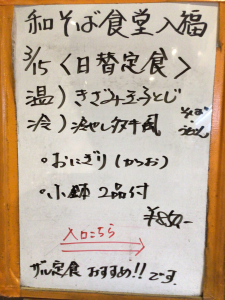 和そば食堂入福
3/15〈日替定食〉
温)きざみ玉子とじ
冷)冷やしタヌキ風
そば
うどん
・おにぎり(かつお)
・小鉢2品付
¥850-
入口こちら
ザル定食おすすめ!!です。